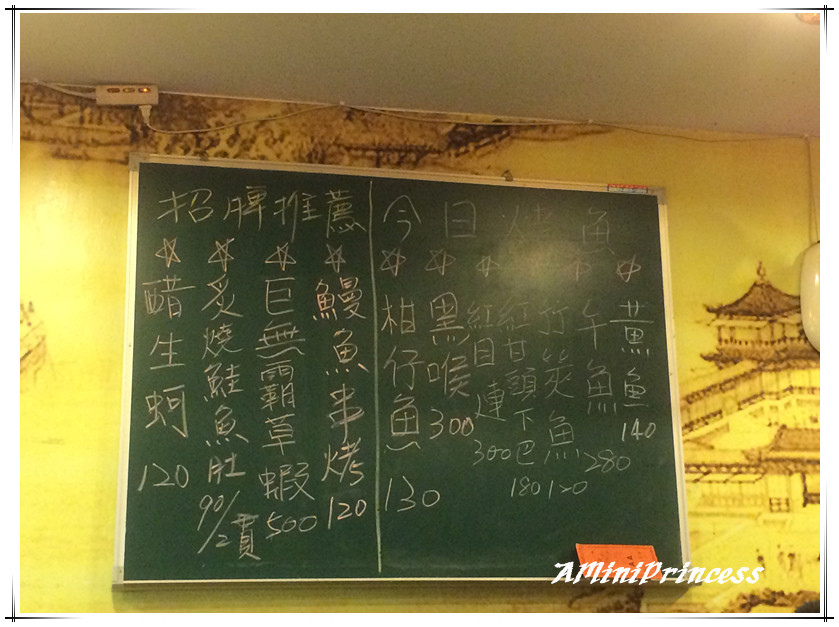 招牌推薦
鰻魚串烤 120
巨無霸草蝦 500
炙燒鮭魚肚 90/2貫
醋生蚵 120
今日烤魚
黃魚 140
午魚 280
竹筴魚 120
紅甘頭下巴 180
紅目連 300
黑喉 300
柑仔魚 130
AMiniPrincess